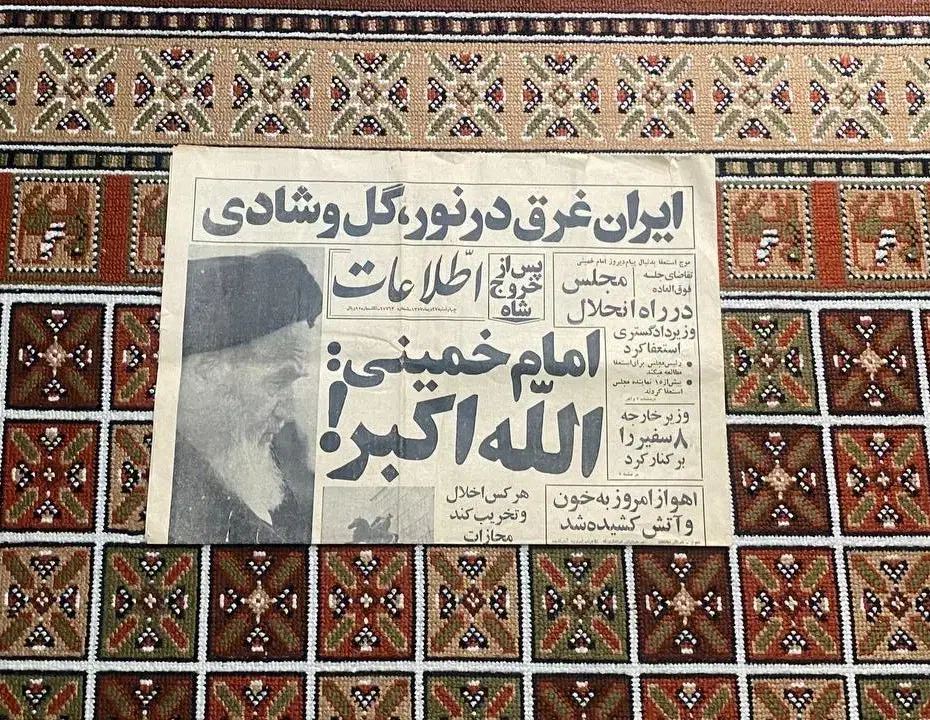 ایران غرق در نور، گل و شادی
موج استعفا بدنبال پیام دیروز امام خمینی
تقاضای جلسه
فوق العاده
مجلس
در راه انحلال
پس از
خروج
شاه
اطّلاعات
وزیر دادگستری
استعفا کرد
رئیس مجلس برای استعفا
مطالعه میکند
بیش از ۱۵ نماینده مجلس
استعفا کردند
امام خمینی:
اللّه اکبر!
وزیر خارجه
۸ سفیر را
بر کنار کرد
اهواز امروز به خون
و آتش کشیده شد
هر کس اخلال
و تخریب کند
مجازات